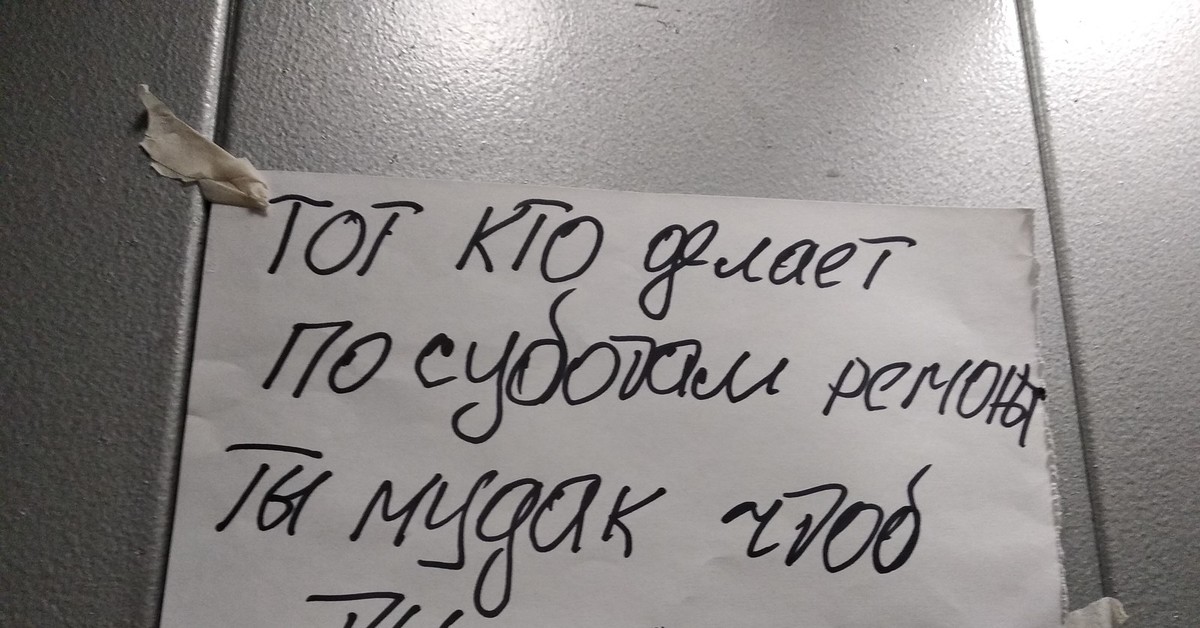 ТОТ КТО делает
ПО суботам ремонт
ТЫ мудак чтоб